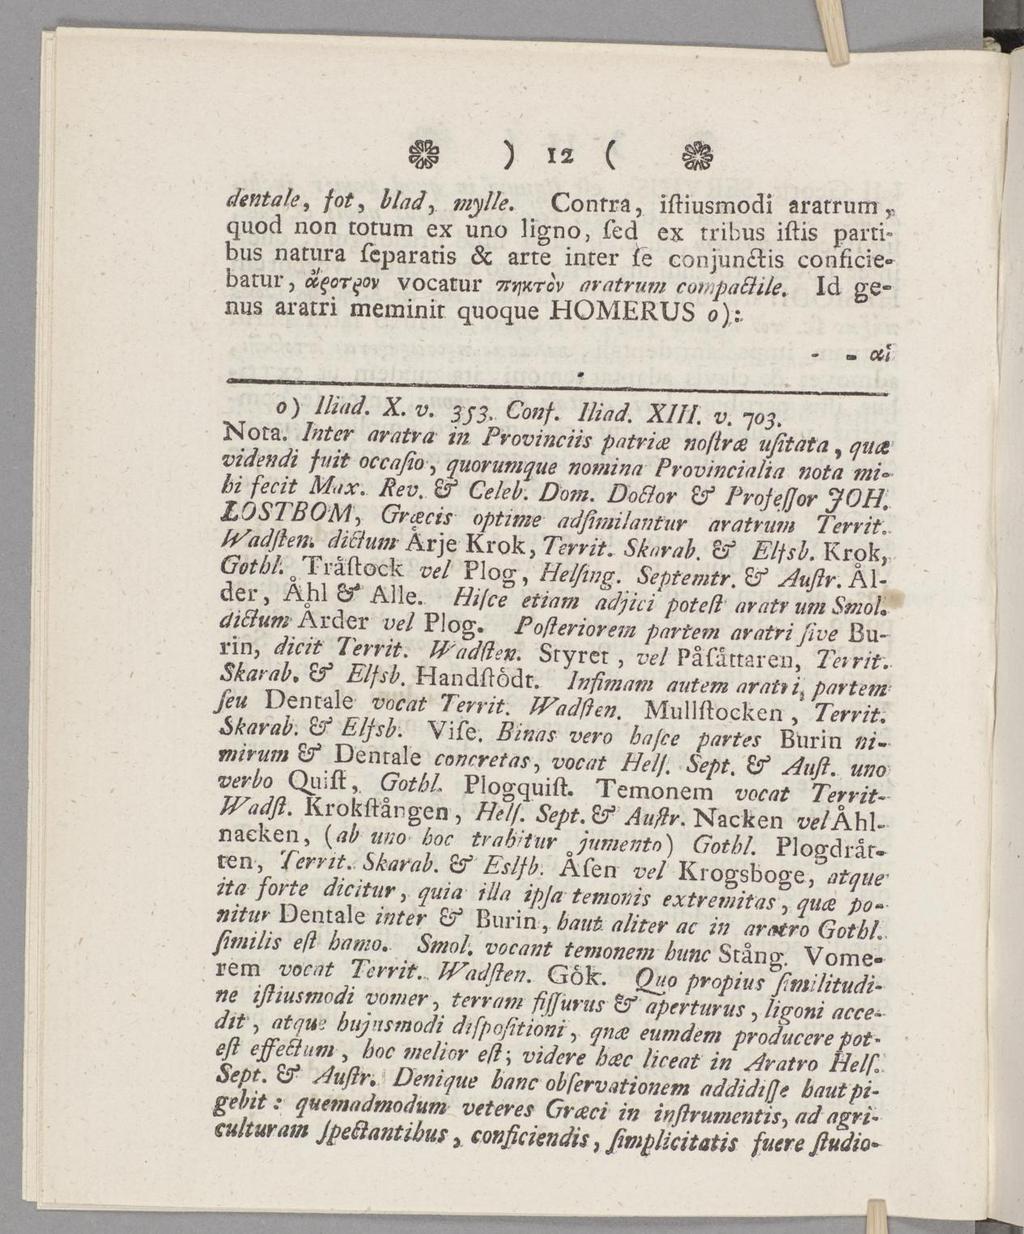 ) 12 (
dentale, fot, blad, mylle. Contra, iſtiusmodi aratrum,
quod non totum ex uno ligno, ſed ex tribus iſtis parti-
bus natura ſeparatis & arte inter ſe conjunctis conficie-
batur, ἄροτρον vocatur πηκτὸν aratrum compactile. Id ge-
nus aratri meminit quoque HOMERUS o):
- - αἱ
o) Iliad. X. v. 353. Conf. Iliad. XIII. v. 703.
Nota. Inter aratra in Provinciis patriæ noſtræ uſitata, quæ
videndi fuit occaſio, quorumque nomina Provincialia nota mi-
hi fecit Max. Rev. & Celeb. Dom. Doctor & Profeſſor JOH.
LOSTBOM, Græcis optime adſimilantur aratrum Territ.
Wadſten. dictum Årje Krok, Territ. Skarab. & Elfsb. Krok,
Gothl. Tråſtock vel Plog, Helſing. Septemtr. & Auſtr. Ål-
der, Åhl & Alle. Hiſce etiam adjici poteſt aratrum Smol.
dictum Årder vel Plog. Poſteriorem partem aratri ſive Bu-
rin, dicit Territ. Wadſten. Styret, vel Påſåttaren, Territ.
Skarab. & Elfsb. Handſtôdt. Infimam autem aratri, partem
ſeu Dentale vocat Territ. Wadſten. Mullſtocken, Territ.
Skarab. & Elfsb. Viſe. Binas vero haſce partes Burin ni-
mirum & Dentale concretas, vocat Helſ. Sept. & Auſt. uno
verbo Quiſt, Gothl. Plogquiſt. Temonem vocat Territ-
Wadſt. Krokſtången, Helſ. Sept. & Auſtr. Nacken vel Åhl-
nacken, (ab uno hoc trahitur jumento) Gothl. Plogdråt-
ten, Territ. Skarab. & Eslfb. Åſen vel Krogsboge, atque
ita forte dicitur, quia illa ipſa temonis extremitas, quæ po-
nitur Dentale inter & Burin, haut aliter ac in aratro Gothl.
ſimilis eſt hamo. Smol. vocant temonem hunc Stång. Vome-
rem vocat Territ. Wadſten. Gôk. Quo propius ſimilitudi-
ne iſtiusmodi vomer, terram fiſſurus & aperturus, ligoni acce-
dit, atque hujusmodi diſpoſitioni, quæ eumdem producere pot-
eſt effectum, hoc melior eſt; videre hæc liceat in Aratro Helſ.
Sept. & Auſtr. Denique hanc obſervationem addidiſſe haut pi-
gebit: quemadmodum veteres Græci in inſtrumentis, ad agri-
culturam ſpectantibus, conficiendis, ſimplicitatis fuere ſtudio-